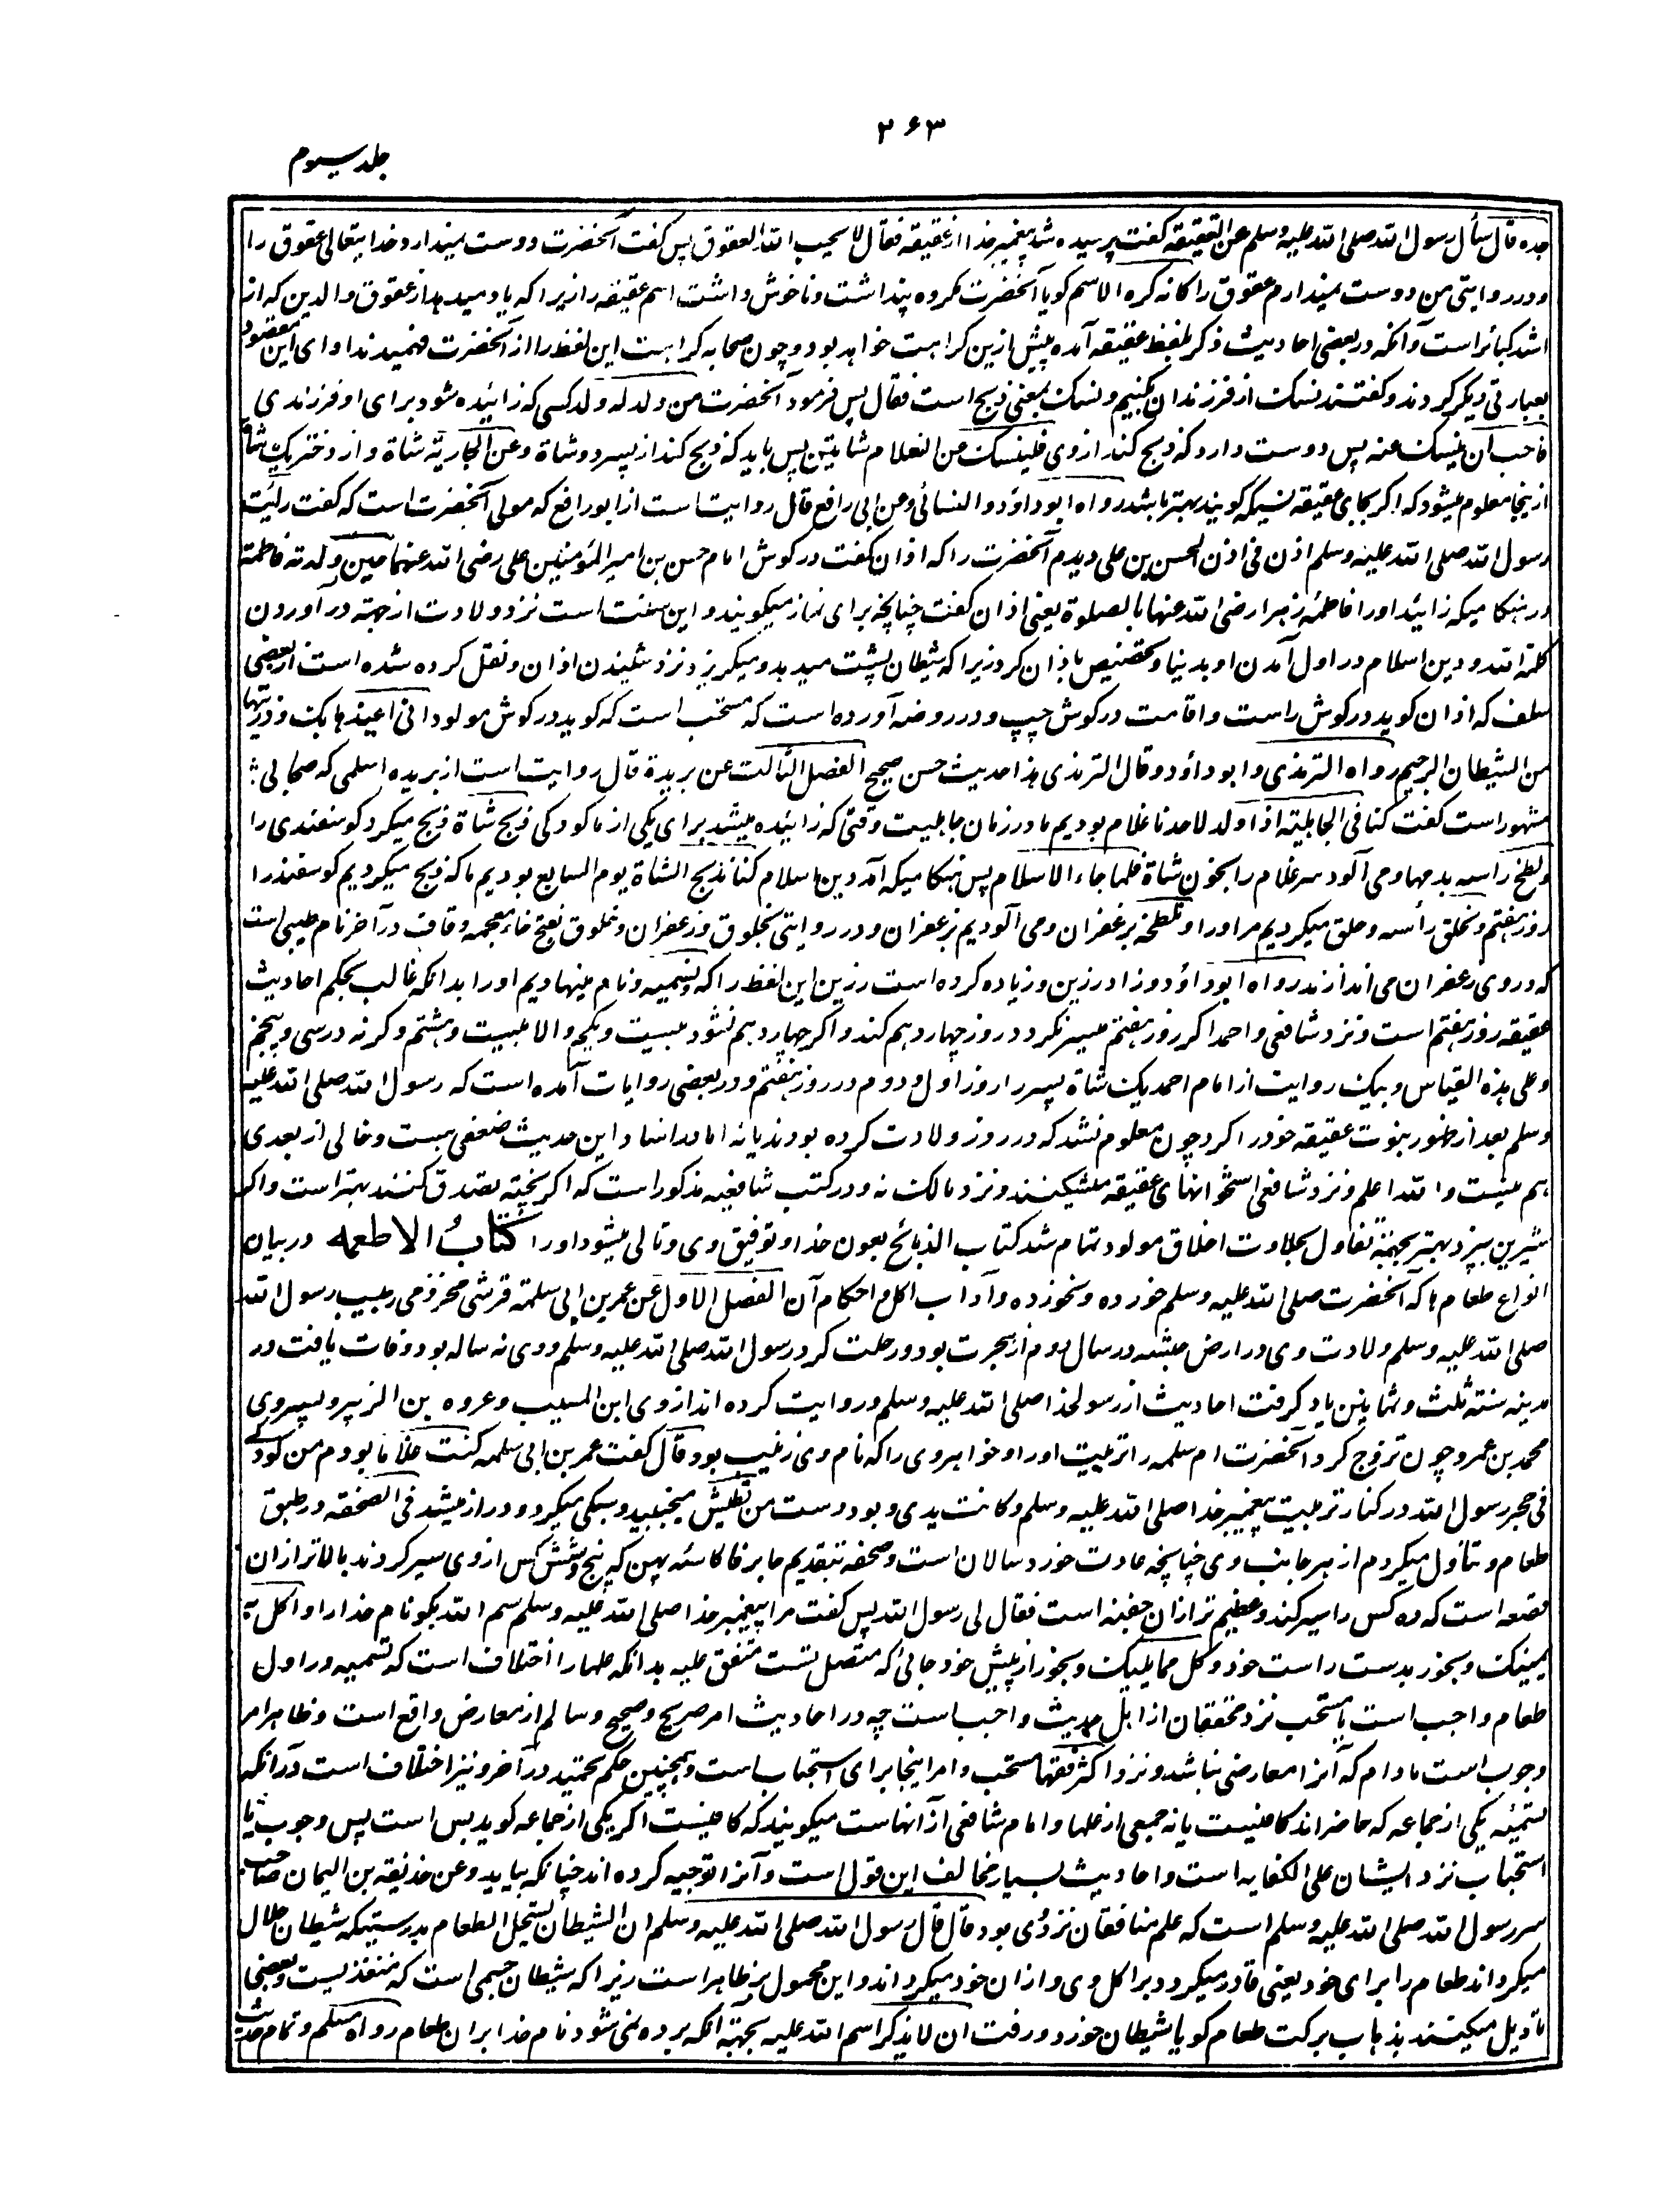 ۲۶۳
جلد سیوم
جده قال سأل رسول الله صلی الله علیه وسلم عن العقیقة گفت پرسیده شد پیغمبر خدا از عقیقه فقال لا یحب الله العقوق پس گفت آنحضرت دوست نمیدارد خدایتعالی عقوق را
و در روایتی من دوست نمیدارم عقوق را کانه کره الاسم گویا آنحضرت مکروه پنداشت و ناخوش داشت اسم عقیقه را زیرا که یاد میدهد از عقوق والدین که از
اشد کبائر است و آنکه در بعضی احادیث ذکر بلفظ عقیقه آمده پیش ازین کراهت خواهد بود و چون صحابه کراهت این لفظ را از آنحضرت فهمیدند ادای این مقصود
بعبارتی دیگر کردند و گفتند نسک از فرزندان بکنیم و نسک بمعنی ذبح است فقال پس فرمود آنحضرت من ولد له ولد کسی که زائیده شود برای او فرزندی
فاحب ان ینسک عنه پس دوست دارد که ذبح کند از وی فلینسک عن الغلام شاتین پس باید که ذبح کند از پسر دو شاة وعن الجاریة شاة و از دختر یک شاة
ازینجا معلوم میشود که اگر بجای عقیقه نسیکه گویند بهتر باشد رواه ابو داؤد والنسائی وعن ابی رافع قال روایت است از ابو رافع که مولی آنحضرت است که گفت رأیت
رسول الله صلی الله علیه وسلم اذن فی اذن الحسن بن علی دیدم آنحضرت را که اذان گفت در گوش امام حسن بن امیر المؤمنین علی رضی الله عنهما حین ولدته فاطمة
در هنگامیکه زائید او را فاطمه زهرا رضی الله عنها بالصلوة یعنی اذان گفت چنانچه برای نماز میگویند و این سنت است نزد ولادت از جهة در آوردن
کلمة الله و دین اسلام در اول آمدن او بدنیا و تخصیص باذان کرد زیرا که شیطان پشت میدهد و میگریزد نزد شنیدن اذان و نقل کرده شده است از بعضی
سلف که اذان گوید در گوش راست و اقامت در گوش چپ و در روضه آورده است که مستحب است که گوید در گوش مولود انی اعیذها بک وذریتها
من الشیطان الرجیم رواه الترمذی وابو داؤد وقال الترمذی هذا حدیث حسن صحیح الفصل الثالث عن بریدة قال روایت است از بریده اسلمی که صحابی
مشهور است گفت کنا فی الجاهلیة اذا ولد لاحدنا غلام بودیم ما در زمان جاهلیت وقتی که زائیده میشد برای یکی از ما کودکی ذبح شاة ذبح میکرد گوسفندی را
ولطخ رأسه بدمها و می آلود سر غلام را بخون شاة فلما جاء الاسلام پس هنگامیکه آمد دین اسلام کنا نذبح الشاة یوم السابع بودیم ما که ذبح میکردیم گوسفند را
روز هفتم ونحلق رأسه و حلق میکردیم مر او را ونلطخه بزعفران و می آلودیم بزعفران و در روایتی بخلوق و زعفران و خلوق بفتح خاء معجمه و قاف در آخر نام طیبی است
که در وی زعفران می اندازند رواه ابو داؤد وزاد رزین و زیاده کرده است رزین این لفظ را که ونسمیه و نام مینهادیم او را بدانکه غالب بحکم احادیث
عقیقه روز هفتم است و نزد شافعی و احمد اگر روز هفتم میسر نگردد روز چهاردهم کند و اگر چهاردهم نشود بیست و یکم والا بیست و هشتم و گرنه در سی و پنجم
وعلی هذه القیاس و بیک روایت از امام احمد یک شاة پسر را روز اول و دوم در روز هفتم و در بعضی روایات آمده است که رسول الله صلی الله علیه
وسلم بعد از ظهور نبوت عقیقه خود را کرد چون معلوم نشد که در روز ولادت کرده بودند یا نه اما در اسناد این حدیث ضعفی هست و خالی از بعدی
هم نیست والله اعلم و نزد شافعی استخوانهای عقیقه میشکنند و نزد مالک نه و در کتب شافعیه مذکور است که اگر پخته تصدق کنند بهتر است و اگر
شیرین پزد بهتر بجهة تفاول بحلاوت اخلاق مولود تمام شد کتاب الذبائح بعون خدا و توفیق وی و تالی میشود او را کتاب الاطعمه در بیان
انواع طعام ها که آنحضرت صلی الله علیه وسلم خورده و نخورده و آداب اکل و احکام آن الفصل الاول عن عمر بن ابی سلمة قرشی مخزومی ربیب رسول الله
صلی الله علیه وسلم ولادت وی در ارض حبشه در سال دوم از هجرت بود و رحلت کرد رسول الله صلی الله علیه وسلم و وی نه ساله بود وفات یافت در
مدینه سنة ثلث وثمانین یاد گرفت احادیث از رسولخدا صلی الله علیه وسلم و روایت کرده اند از وی ابن المسیب و عروه بن الزبیر و پسر وی
محمد بن عمر و چون تزوج کرد آنحضرت ام سلمه را تربیت او را و خواهر وی را که نام وی زینب بود قال گفت عمر بن ابی سلمه کنت غلاما بودم من کودکے
فی حجر رسول الله در کنار تربیت پیغمبر خدا صلی الله علیه وسلم وکانت یدی و بود دست من تطیش میجنبید و سبکی میکرد و دراز میشد فی الصحفة در طبق
طعام و تناول میکردم از هر جانب وی چنانچه عادت خوردسالان است و صحفه بتقدیم حا بر فا کاسه پهن که پنج و شش کس از وی سیر گردند بالاتر ازان
قصعه است که ده کس را سیر کند و عظیم تر ازان جفنه است فقال لی رسول الله پس گفت مرا پیغمبر خدا صلی الله علیه وسلم سم الله بگو نام خدا را وکل
بیمینک و بخور بدست راست خود وکل مما یلیک و بخور از پیش خود جائی که متصل تست متفق علیه بدانکه علما را اختلاف است که تسمیه در اول
طعام واجب است یا مستحب نزد محققان از اهل حدیث واجب است چه در احادیث امر صریح و صحیح و سالم از معارض واقع است و ظاهر امر
وجوب است مادام که آنرا معارضی نباشد و نزد اکثر فقها مستحب و امر اینجا برای استحباب است و همچنین حکم تحمید در آخر و نیز اختلاف است در آنکه
تسمیه یکی از جماعه که حاضر اند کافیست یا نه جمعی از علما و امام شافعی از آنهاست میگویند که کافیست اگر یکی از جماعه گوید بس است پس وجوب یا
استحباب نزد ایشان علی الکفایه است و احادیث بسیار مخالف این قول است و آنرا توجیه کرده اند چنانکه بیاید وعن حذیفة بن الیمان صاحب
سر رسول الله صلی الله علیه وسلم است که علم منافقان نزد وی بود قال قال رسول الله صلی الله علیه وسلم ان الشیطان یستحل الطعام بدرستیکه شیطان حلال
میگرداند طعام را برای خود یعنی قادر میگردد بر اکل وی و ازان خود میگرداند و این محمول بر ظاهر است زیرا که شیطان جسمی است که متغذیست و بعضی
تاویل میکنند بذهاب برکت طعام گویا شیطان خورد و رفت ان لا یذکر اسم الله علیه بجهة آنکه برده نمی شود نام خدا بران طعام رواه مسلم و تمام حدیث